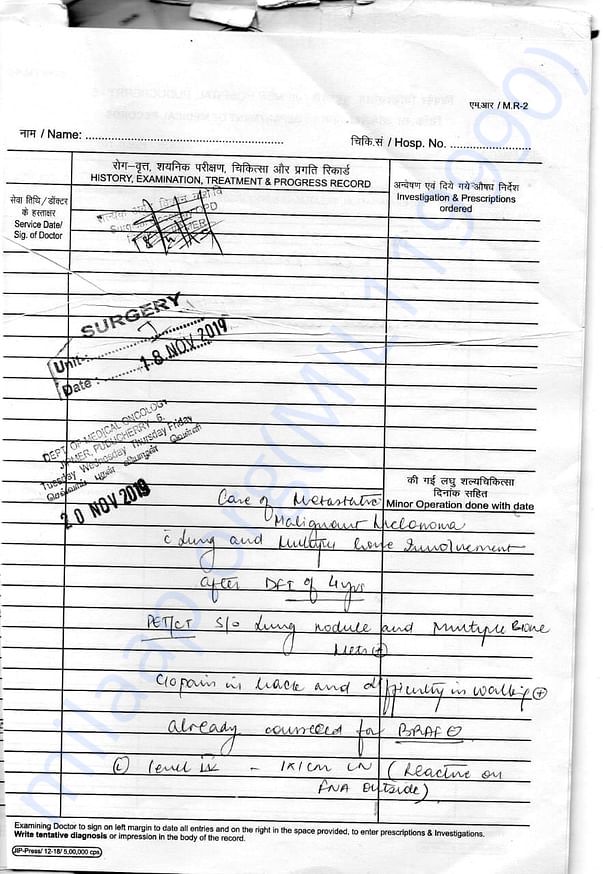 एम.आर / M.R-2
नाम / Name: ........................................................
चिकि.सं / Hosp. No. ......................
रोग-वृत्त, शयनिक परीक्षण, चिकित्सा और प्रगति रिकार्ड
HISTORY, EXAMINATION, TREATMENT & PROGRESS RECORD
सेवा तिथि / डॉक्टर
के हस्ताक्षर
Service Date/
Sig. of Doctor
अन्वेषण एवं दिये गये औषध निर्देश
Investigation & Prescriptions
ordered
SURGERY
Unit:
Date: 18 NOV 2019
DEPT. OF MEDICAL ONCOLOGY
JIPMER, PUDUCHERRY - 6.
Tuesday Wednesday Thursday Friday
20 NOV 2019
की गई लघु शल्यचिकित्सा
दिनांक सहित
Minor Operation done with date
Case of Metastatic
Malignant Melanoma
c̄ Lung and Multiple bone Involvement
after DFI of 4 yrs
PET/CT S/o Lung nodule and Multiple Bone
Mets ⊕
C/o pain in back and difficulty in walking ⊕
already counselled for BRAF ⊖
Ⓛ level IV - 1x1cm LN (Reactive on
FNA outside)
Examining Doctor to sign on left margin to date all entries and on the right in the space provided, to enter prescriptions & Investigations.
Write tentative diagnosis or impression in the body of the record.
JIP-Press/ 12-18/ 5,00,000 cps
milaap.org(MIL119990)